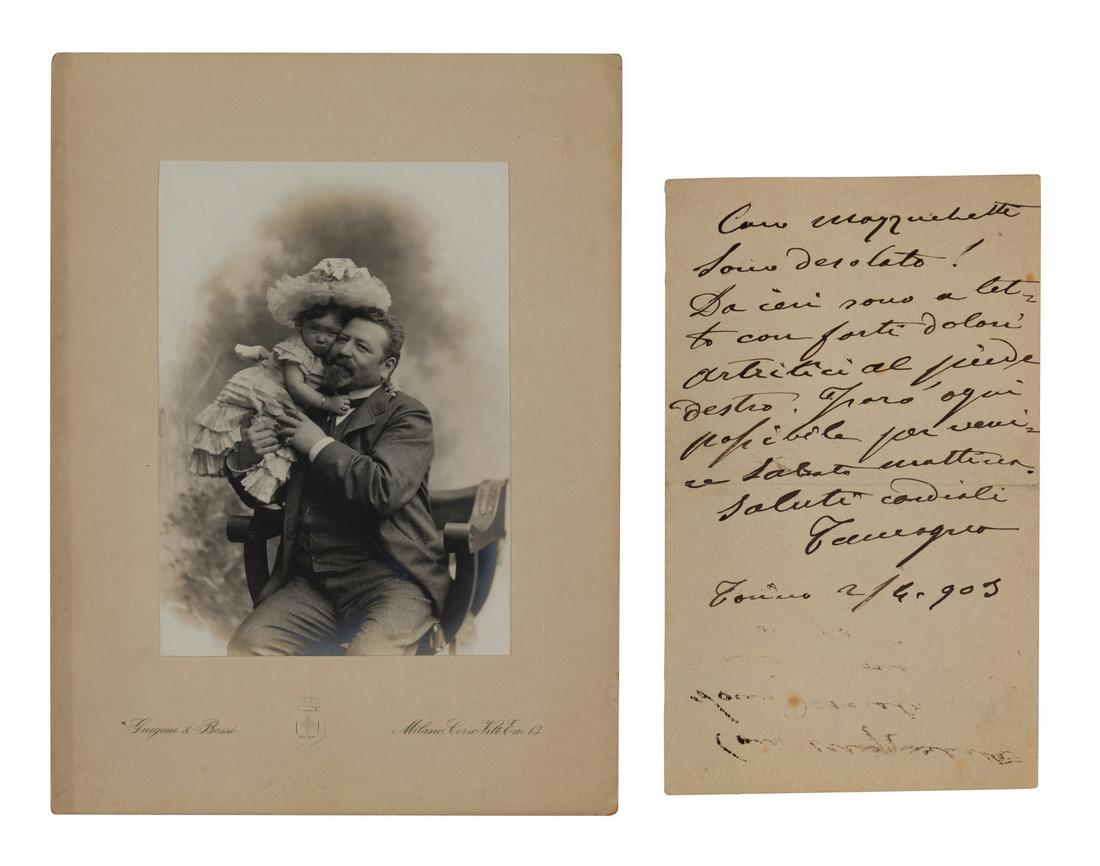 Guigoni & Bossi
Milano. Corso Vitt. Em. 13.
Caro Mazzuchetti
Sono desolato!
Da ieri sono a let-
to con forti dolori
artritici al piede
destro. Farò ogni
possibile per veni-
re sabato mattina.
Saluti cordiali
Tamagno
Torino 2/4. 903